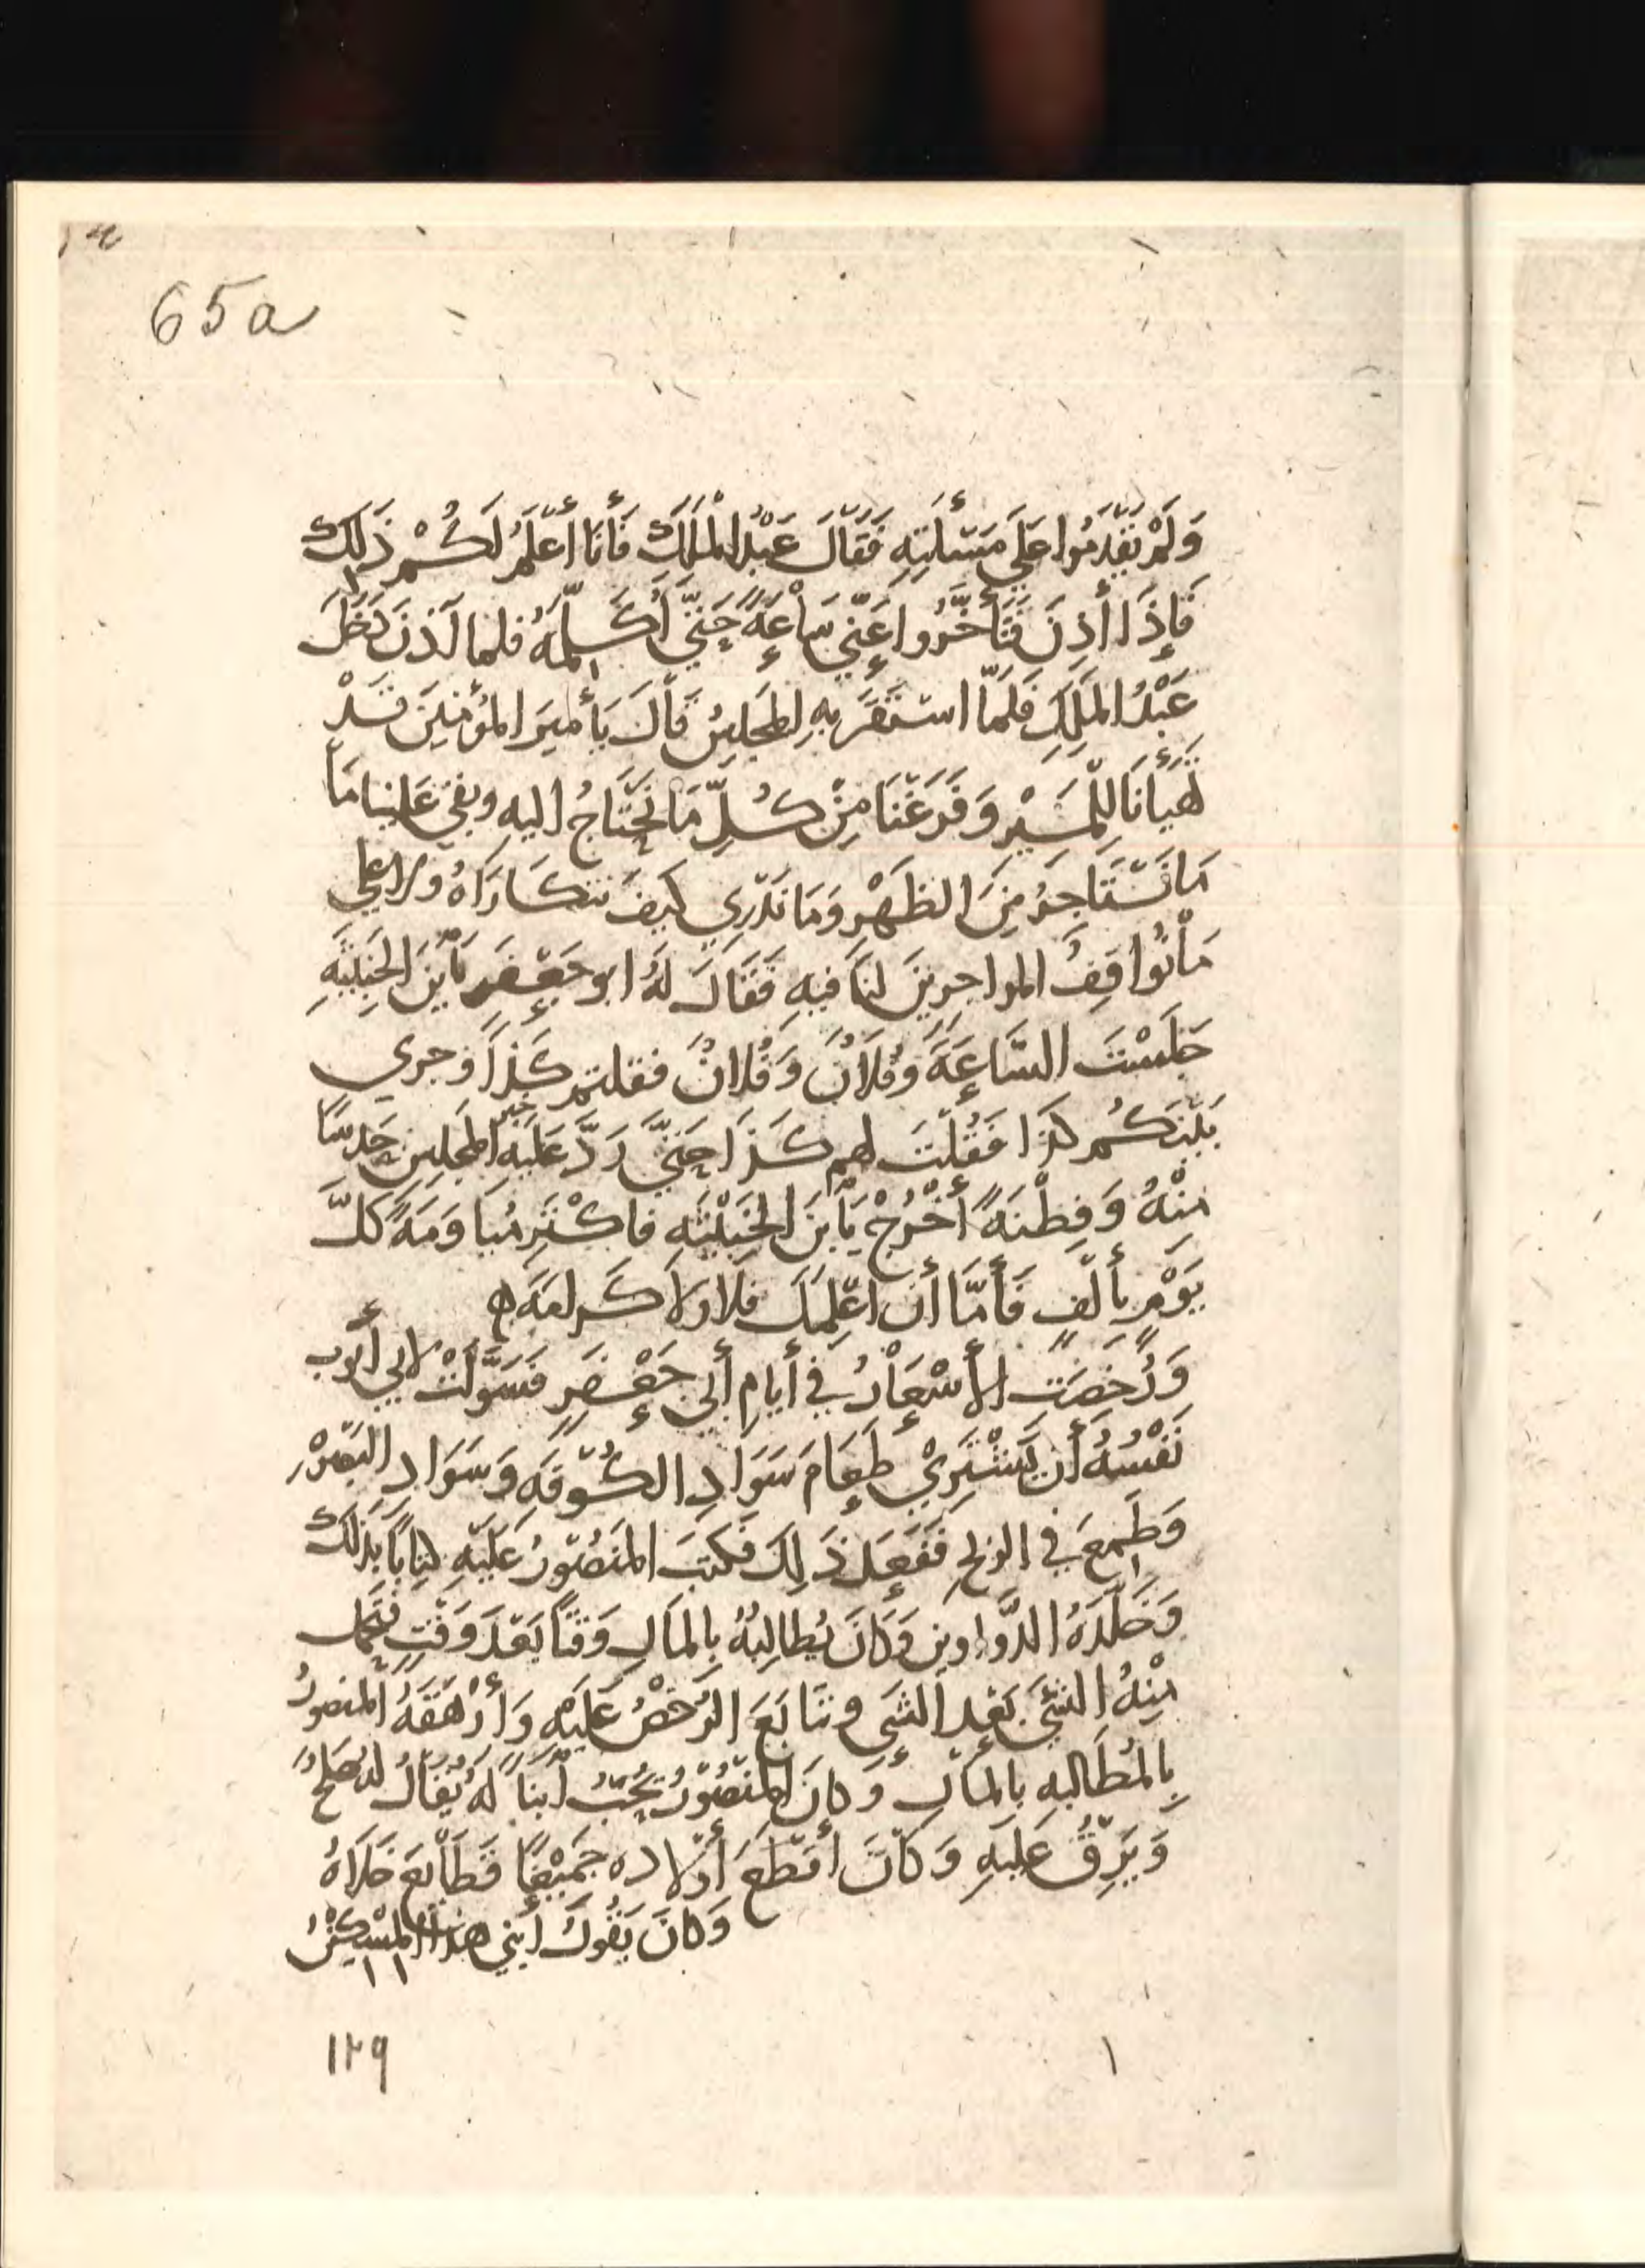 65a
وَلَمْ يَقْدِمُوا عَلَي مَسْأَلَتِهِ فَقَالَ عَبْدُ الْمَلِكِ فَأَنَا أَعْلَمُ لَكُمْ ذَلِكَ
فَإِذَا أَذِنَ فَتَأَخَّرُوا عَنِّي سَاعَةً حَتَّي أُكَلِّمَهُ فلما أذن دَخَلَ
عَبْدُ المَلِكِ فَلَمَّا استَقَرَّ بِهِ المَجلِسُ قَالَ يَا أَمِيرَ المُؤْمِنِينَ قَدْ
تَهَيَّأْنَا لِلْمَسِيْرِ وَفَرَغْنَا مِنْ كُلِّ مَا نَحْتَاجُ اليه وبقي عَلينا مَا
مَا نَسْتَاجِرُ مِنَ الظَهْرِ وَمَا نَدْرِي كَيفَ نتكَارَاهُ ولا علي
مَا نُواقِفُ المواجرِينَ لنَا فيهِ فَقَالَ لَهُ ابو جَعْفَرٍ يَا بْنَ الخَبِيثَةِ
جَلَسْتَ السَّاعَةَ وَفُلَانٌ وَفُلَانٌ فقلتم كَذَا وجري
بَيْنَكُم كذا فَقُلْتَ لهم كَذَا حَتَّي رَدَّ عَلَيهِ خبر المَجلِسِ حَدسًا
مِنْهُ وَفِطْنَةً أُخْرُجْ يَا بنَ الخَبِيثَةِ فاكْتَرِ مُيَاوَمَةً كلَّ
يَوْمٍ بأَلْفٍ فَأَمَّا أَن اعلِّمَكَ فَلَا ولا كَرامَة ه
وَرَخُصَت الأَسْعَارُ في أَيامِ أَبي جَعْفَرٍ فَسَوَّلَتْ لابي أَيوب
نَفْسُهُ أَن يَشْتَرِيَ طَعَامَ سَوَادِ الكُوْفَةِ وَسَوَادِ البَصْرَةِ
وَطَمِعَ في الربح فَفَعَلَ ذَلِكَ فَكَتَبَ المَنصُورُ عَلَيْهِ كِتَابًا بذلك
وَخَلَّدَهُ الدَّواوين وَكَانَ يُطالِبُهُ بِالمَالِ وَقتًا بَعْدَ وَقْتٍ فيَحمل
مِنْهُ الشَيْءَ بَعْدَ الشَي وتَتَابَعَ الرُخصُ عَلَيْهِ وَأَرْهَقَهُ المنصورُ
بِالمُطَالبه بالمَالِ وَكَانَ المَنصُوْرُ يُحِبُّ ابْنًا لَهُ يُقَالُ له صَالحٌ
وَيَرِقُّ عَلَيهِ وَكَانَ أَقطَعَ أَوْلاده جَمِيْعًا قَطَائِعَ خَلَاهُ
وَكَانَ يَقُولُ ابْنِي هذا المِسْكِيْنُ
١٢٩